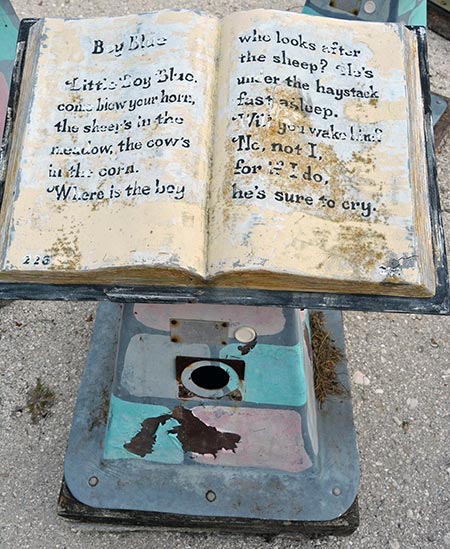 Boy Blue
Little Boy Blue,
come blow your horn,
the sheep's in the
meadow, the cow's
in the corn.
Where is the boy
who looks after
the sheep? He's
under the haystack
fast asleep.
Will you wake him?
No, not I,
for if I do,
he's sure to cry.